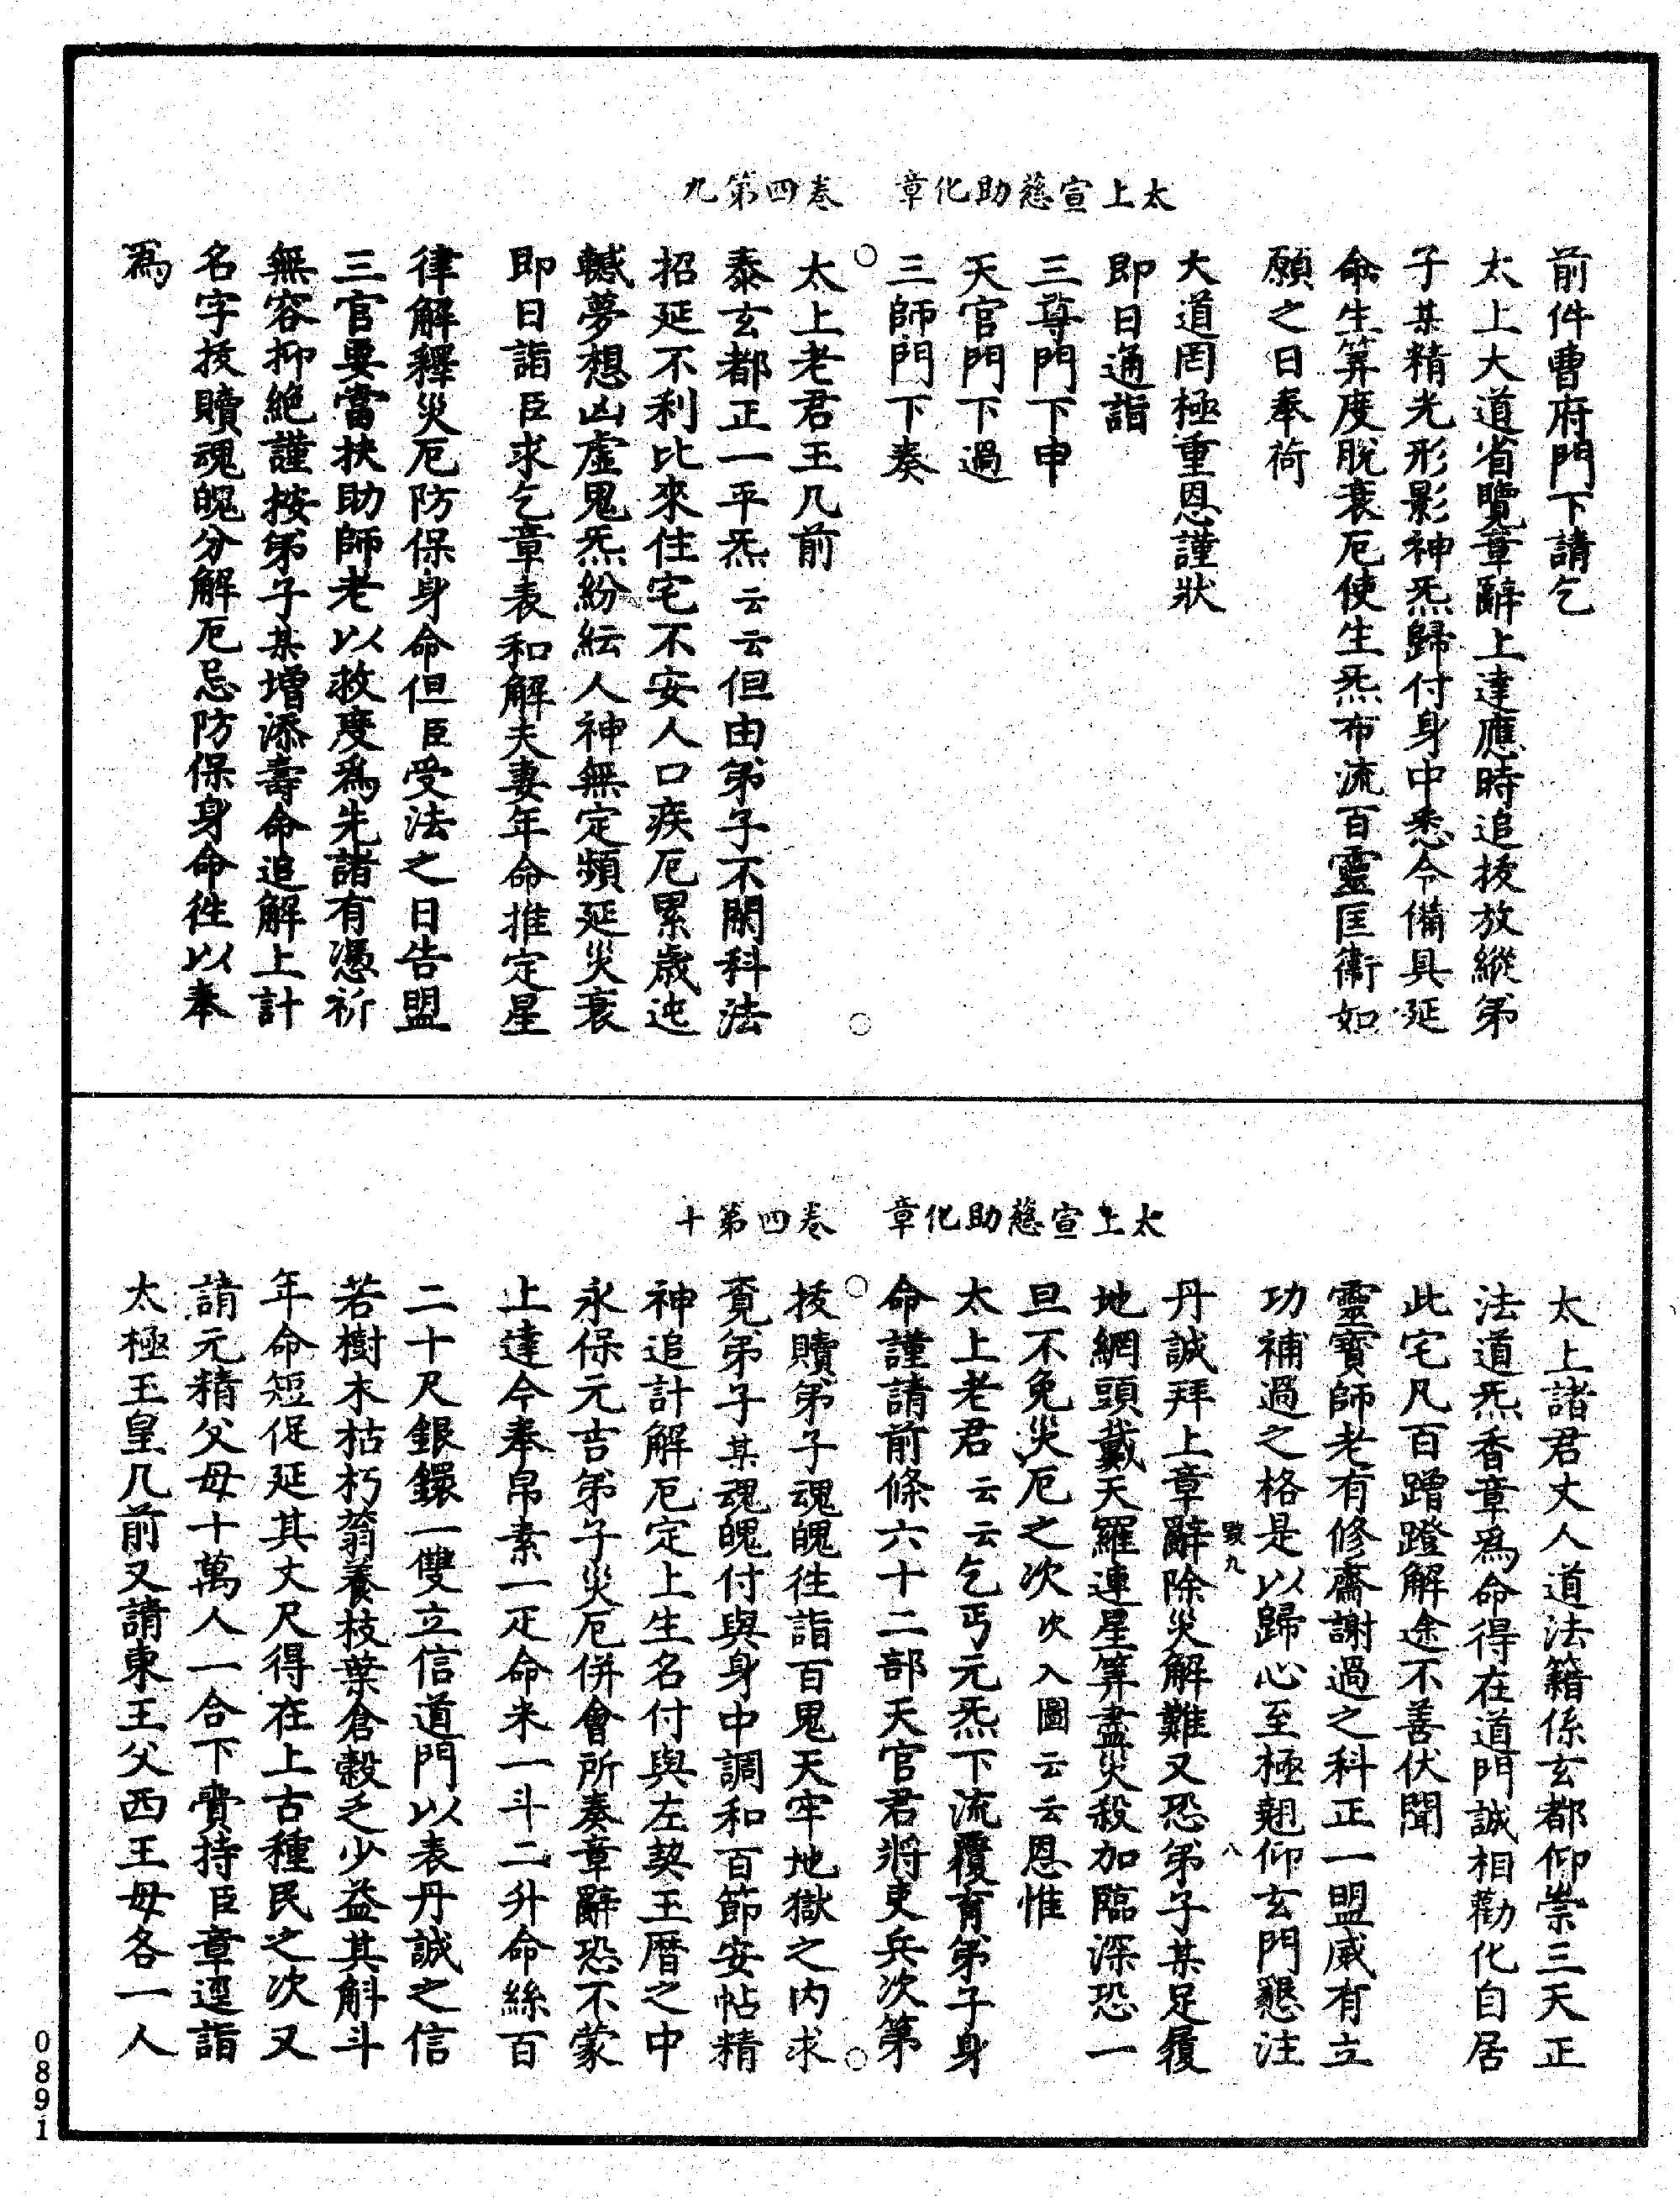 太上宣慈助化章　卷四第九
前件曹府門下請乞
太上大道省覽章辭上達應時追拔放縱弟
子某精光形影神炁歸付身中悉令備具延
命生筭度脫衰厄使生炁布流百靈匡衛如
願之日奉荷
大道罔極重恩謹狀
即日通詣
三尊門下申
天官門下過
三師門下奏
太上老君玉几前
泰玄都正一平炁云云但由弟子不閑科法
招延不利比來住宅不安人口疾厄累歲迍
轗夢想凶虛鬼炁紛紜人神無定頻延災衰
即日詣臣求乞章表和解夫妻年命推定星
律解釋災厄防保身命但臣受法之日告盟
三官要當扶助師老以救度爲先諸有憑祈
無容抑絕謹按弟子某增添壽命追解上計
名字拔贖魂魄分解厄忌防保身命徃以奉
爲
太上宣慈助化章　卷四第十
太上諸君丈人道法籍係玄都仰崇三天正
法道炁香章爲命得在道門誠相勸化自居
此宅凡百蹭蹬解途不善伏聞
靈寶師老有修齋謝過之科正一盟威有立
功補過之格是以歸心至極翹仰玄門懇注
斅九　八
丹誠拜上章辭除災解難又恐弟子某足履
地網頭戴天羅連星筭盡災殺加臨深恐一
旦不免災厄之次次入圖云云恩惟
太上老君云云乞丐元炁下流覆育弟子身
命謹請前條六十二部天官君將吏兵次第
拔贖弟子魂魄徃詣百鬼天牢地獄之內求
覓弟子某魂魄付與身中調和百節安帖精
神追計解厄定上生名付與左契玉曆之中
永保元吉弟子災厄併會所奏章辭恐不蒙
上達今奉帛素一疋命米一斗二升命絲百
二十尺銀鐶一雙立信道門以表丹誠之信
若樹木枯朽蓊養枝葉倉穀乏少益其斛斗
年命短促延其丈尺得在上古種民之次又
請元精父母十萬人一合下賷持臣章逕詣
太極玉皇几前又請東王父西王母各一人
0891